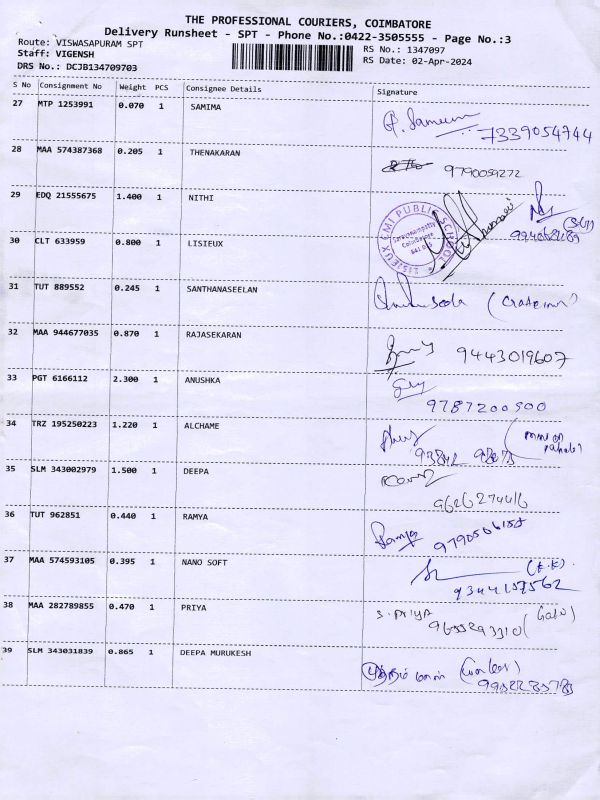 THE PROFESSIONAL COURIERS, COIMBATORE
Delivery Runsheet - SPT - Phone No.:0422-3505555 - Page No.:3
Route: VISWASAPURAM SPT
RS No.: 1347097
Staff: VIGENSH
RS Date: 02-Apr-2024
DRS No.: DCJB134709703
S No Consignment No Weight PCS Consignee Details Signature
27 MTP 1253991 0.070 1 SAMIMA
7339054744
28 MAA 574387368 0.205 1 THENAKARAN
9790059272
29 EDQ 21555675 1.400 1 NITHI
LISIEUX CMI PUBLIC SCHOOL
Coimbatore
30 CLT 633959 0.800 1 LISIEUX
31 TUT 889552 0.245 1 SANTHANASEELAN
32 MAA 944677035 0.870 1 RAJASEKARAN
9443019607
33 PGT 6166112 2.300 1 ANUSHKA
9787200500
34 TRZ 195250223 1.220 1 ALCHAME
35 SLM 343002979 1.500 1 DEEPA
9626274416
36 TUT 962851 0.440 1 RAMYA
Ramya
37 MAA 574593105 0.395 1 NANO SOFT
(K.K)
9344157562
38 MAA 282789855 0.470 1 PRIYA
S. PRIYA
39 SLM 343031839 0.865 1 DEEPA MURUKESH